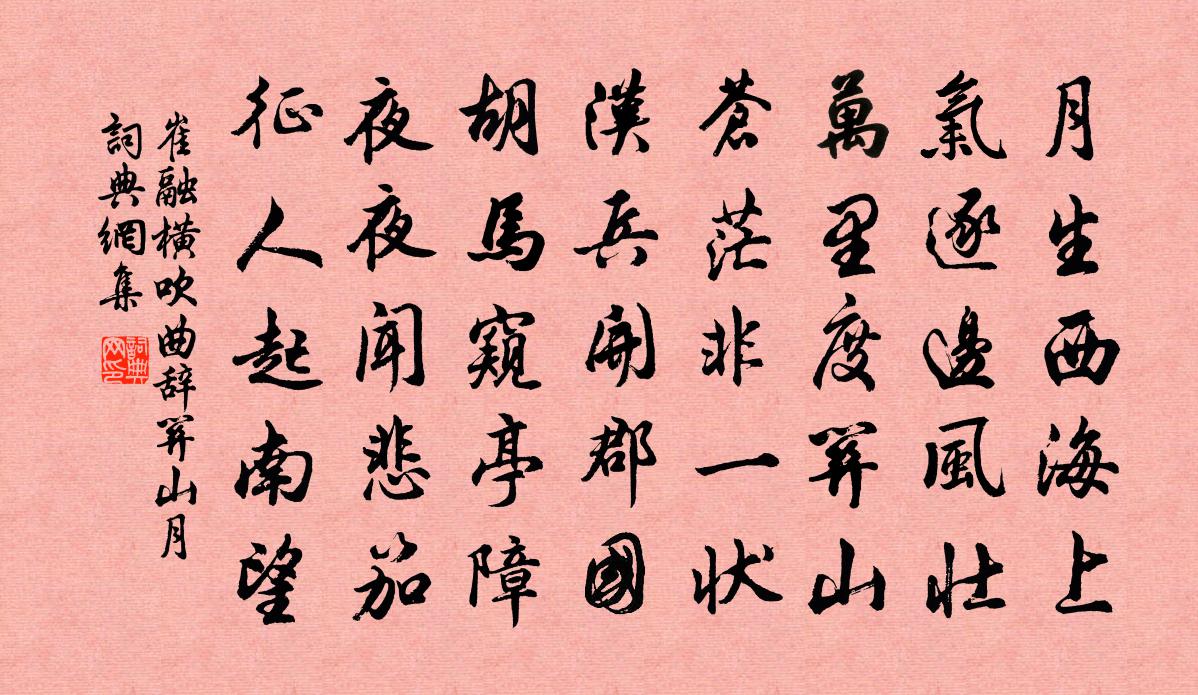 月生西海上
氣逐邊風壯
萬里度關山
蒼茫非一狀
漢兵開郡國
胡馬窺亭障
夜夜聞悲笳
征人起南望
崔融橫吹曲辞關山月
詞典網集
詞典网印